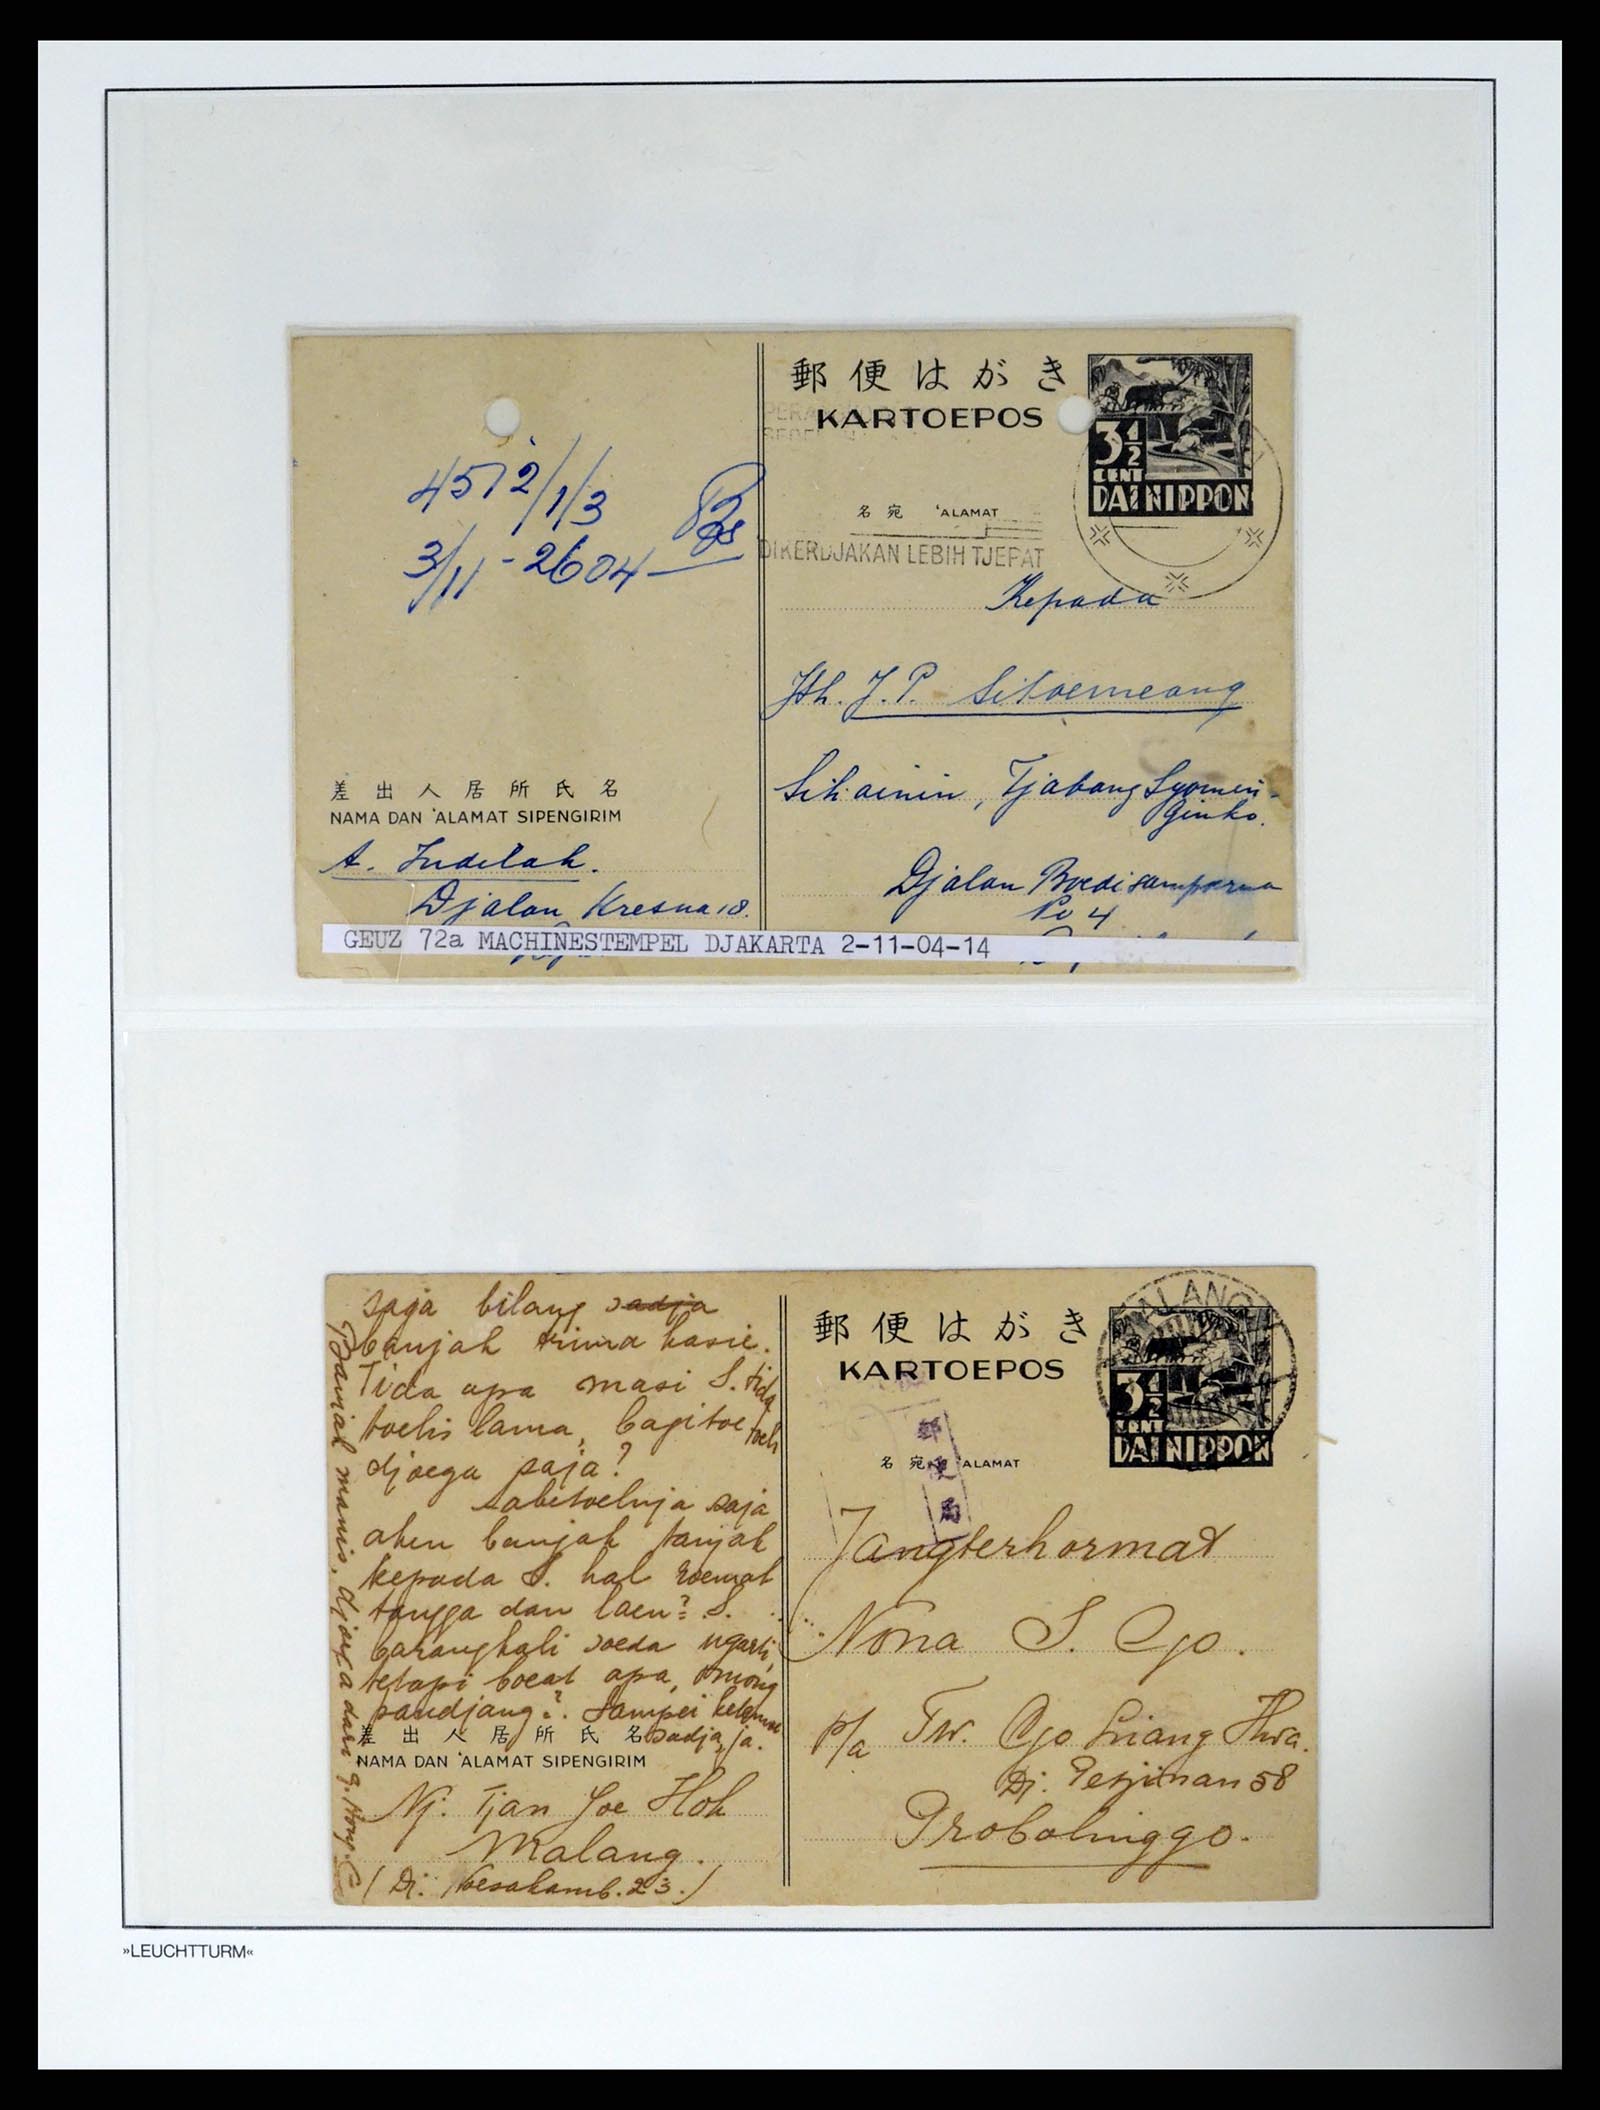 郵便はがき
KARTOEPOS
3½
CENT
DAI NIPPON
名宛 'ALAMAT
DIKERDJAKAN LEBIH TJEPAT
4572/1/3
3/11-2604
Kepada
Jth. J. P. Sitoemeang
Tjabang Syomin
Ginko.
Djalan Boedi
No 4
差出人居所氏名
NAMA DAN 'ALAMAT SIPENGIRIM
A. Indilah.
Djalan Kresna 18.
GEUZ 72a MACHINESTEMPEL DJAKARTA 2-11-04-14
saja bilang sadja
banjak trima kasie.
Tida apa masi S. tida
toelis lama, bagitoe toch
djoega saja?
Sabetoelnja saja
aken banjak tanjak
kepada S. hal roemah
tangga dan laen? S.
barangkali soeda ngarti,
tetapi boeat apa, omong
pandjang? Sampei ketemu
sadja, ja.
Banjak manis, djoega dari
差出人居所氏名
NAMA DAN 'ALAMAT SIPENGIRIM
Nj. Tjan Joe Hok
Malang.
(Dj. Noesakamb. 23.)
郵便はがき
KARTOEPOS
MALANG
3½
CENT
DAI NIPPON
郵便局
名宛 'ALAMAT
Jangterhormat
Nona S. Ojo.
p/a Tw. Ojo Liang Hwa.
Dj. Petjinan 58
Probolinggo.
»LEUCHTTURM«